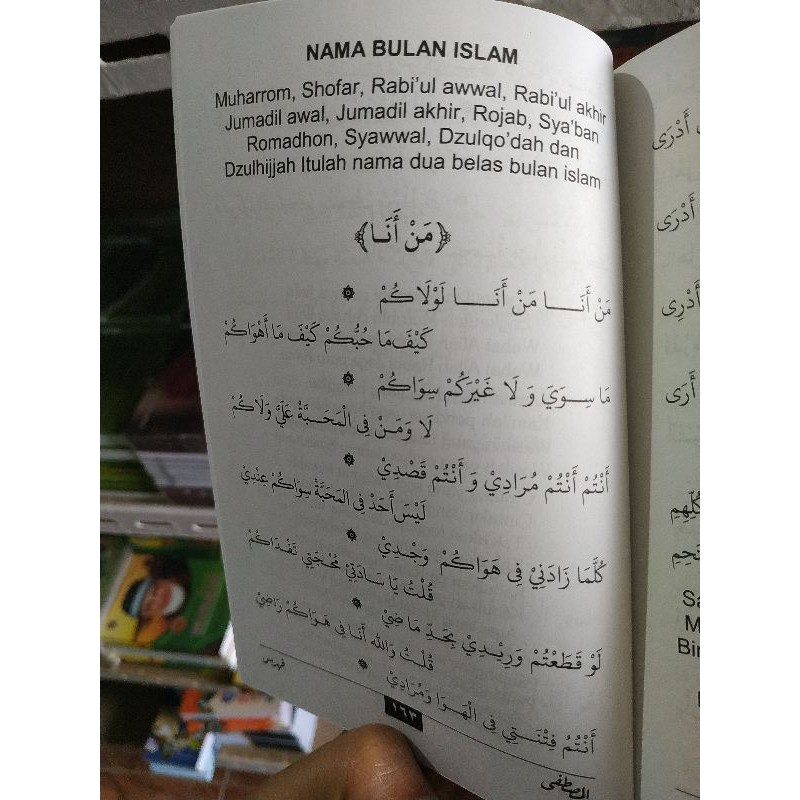 NAMA BULAN ISLAM
Muharrom, Shofar, Rabi'ul awwal, Rabi'ul akhir
Jumadil awal, Jumadil akhir, Rojab, Sya'ban
Romadhon, Syawwal, Dzulqo'dah dan
Dzulhijjah Itulah nama dua belas bulan islam
﴿مَنْ أَنَا﴾
مَنْ أَنَـــا مَنْ أَنَـــا لَوْلَاكُمْ ۞
كَيْفَ مَا حُبُّكُمْ كَيْفَ مَا أَهْوَاكُمْ
مَا سِــوَيَ وَ لَا غَيْرَكُمْ سِوَاكُمْ ۞
لَا وَمَنْ فِى الْمَحَبَّةُ عَلَيَّ وِلَاكُمْ
أَنْتُمْ أَنْتُمْ مُرَادِيْ وَ أَنْتُمْ قَصْدِيْ ۞
لَيْسَ أَحَدْ فِى الْمَحَبَّةْ سِوَاكُمْ عِنْدِيْ
كُلَّمَا زَادَنِيْ فِى هَوَاكُمْ وَجْدِيْ ۞
قُلْتُ يَا سَادَتِيْ مُحْجَتِيْ تَفْدَاكُمْ
لَوْ قَطَعْتُمْ وَرِيْدِيْ بِحَدِّ مَاضِيْ ۞
قُلْتُ وَالله أَنَا فِى هَوَاكُمْ رَاضِيْ
أَنْتُمُ فِتْنَتِي فِى الْهَوَا وَمُرَادِيْ ۞
فهرس
١٦٣
المصطفى
أَدْرَى
أَدْرَى
أَدْرِى
أَرَى
كُلِّهِمِ